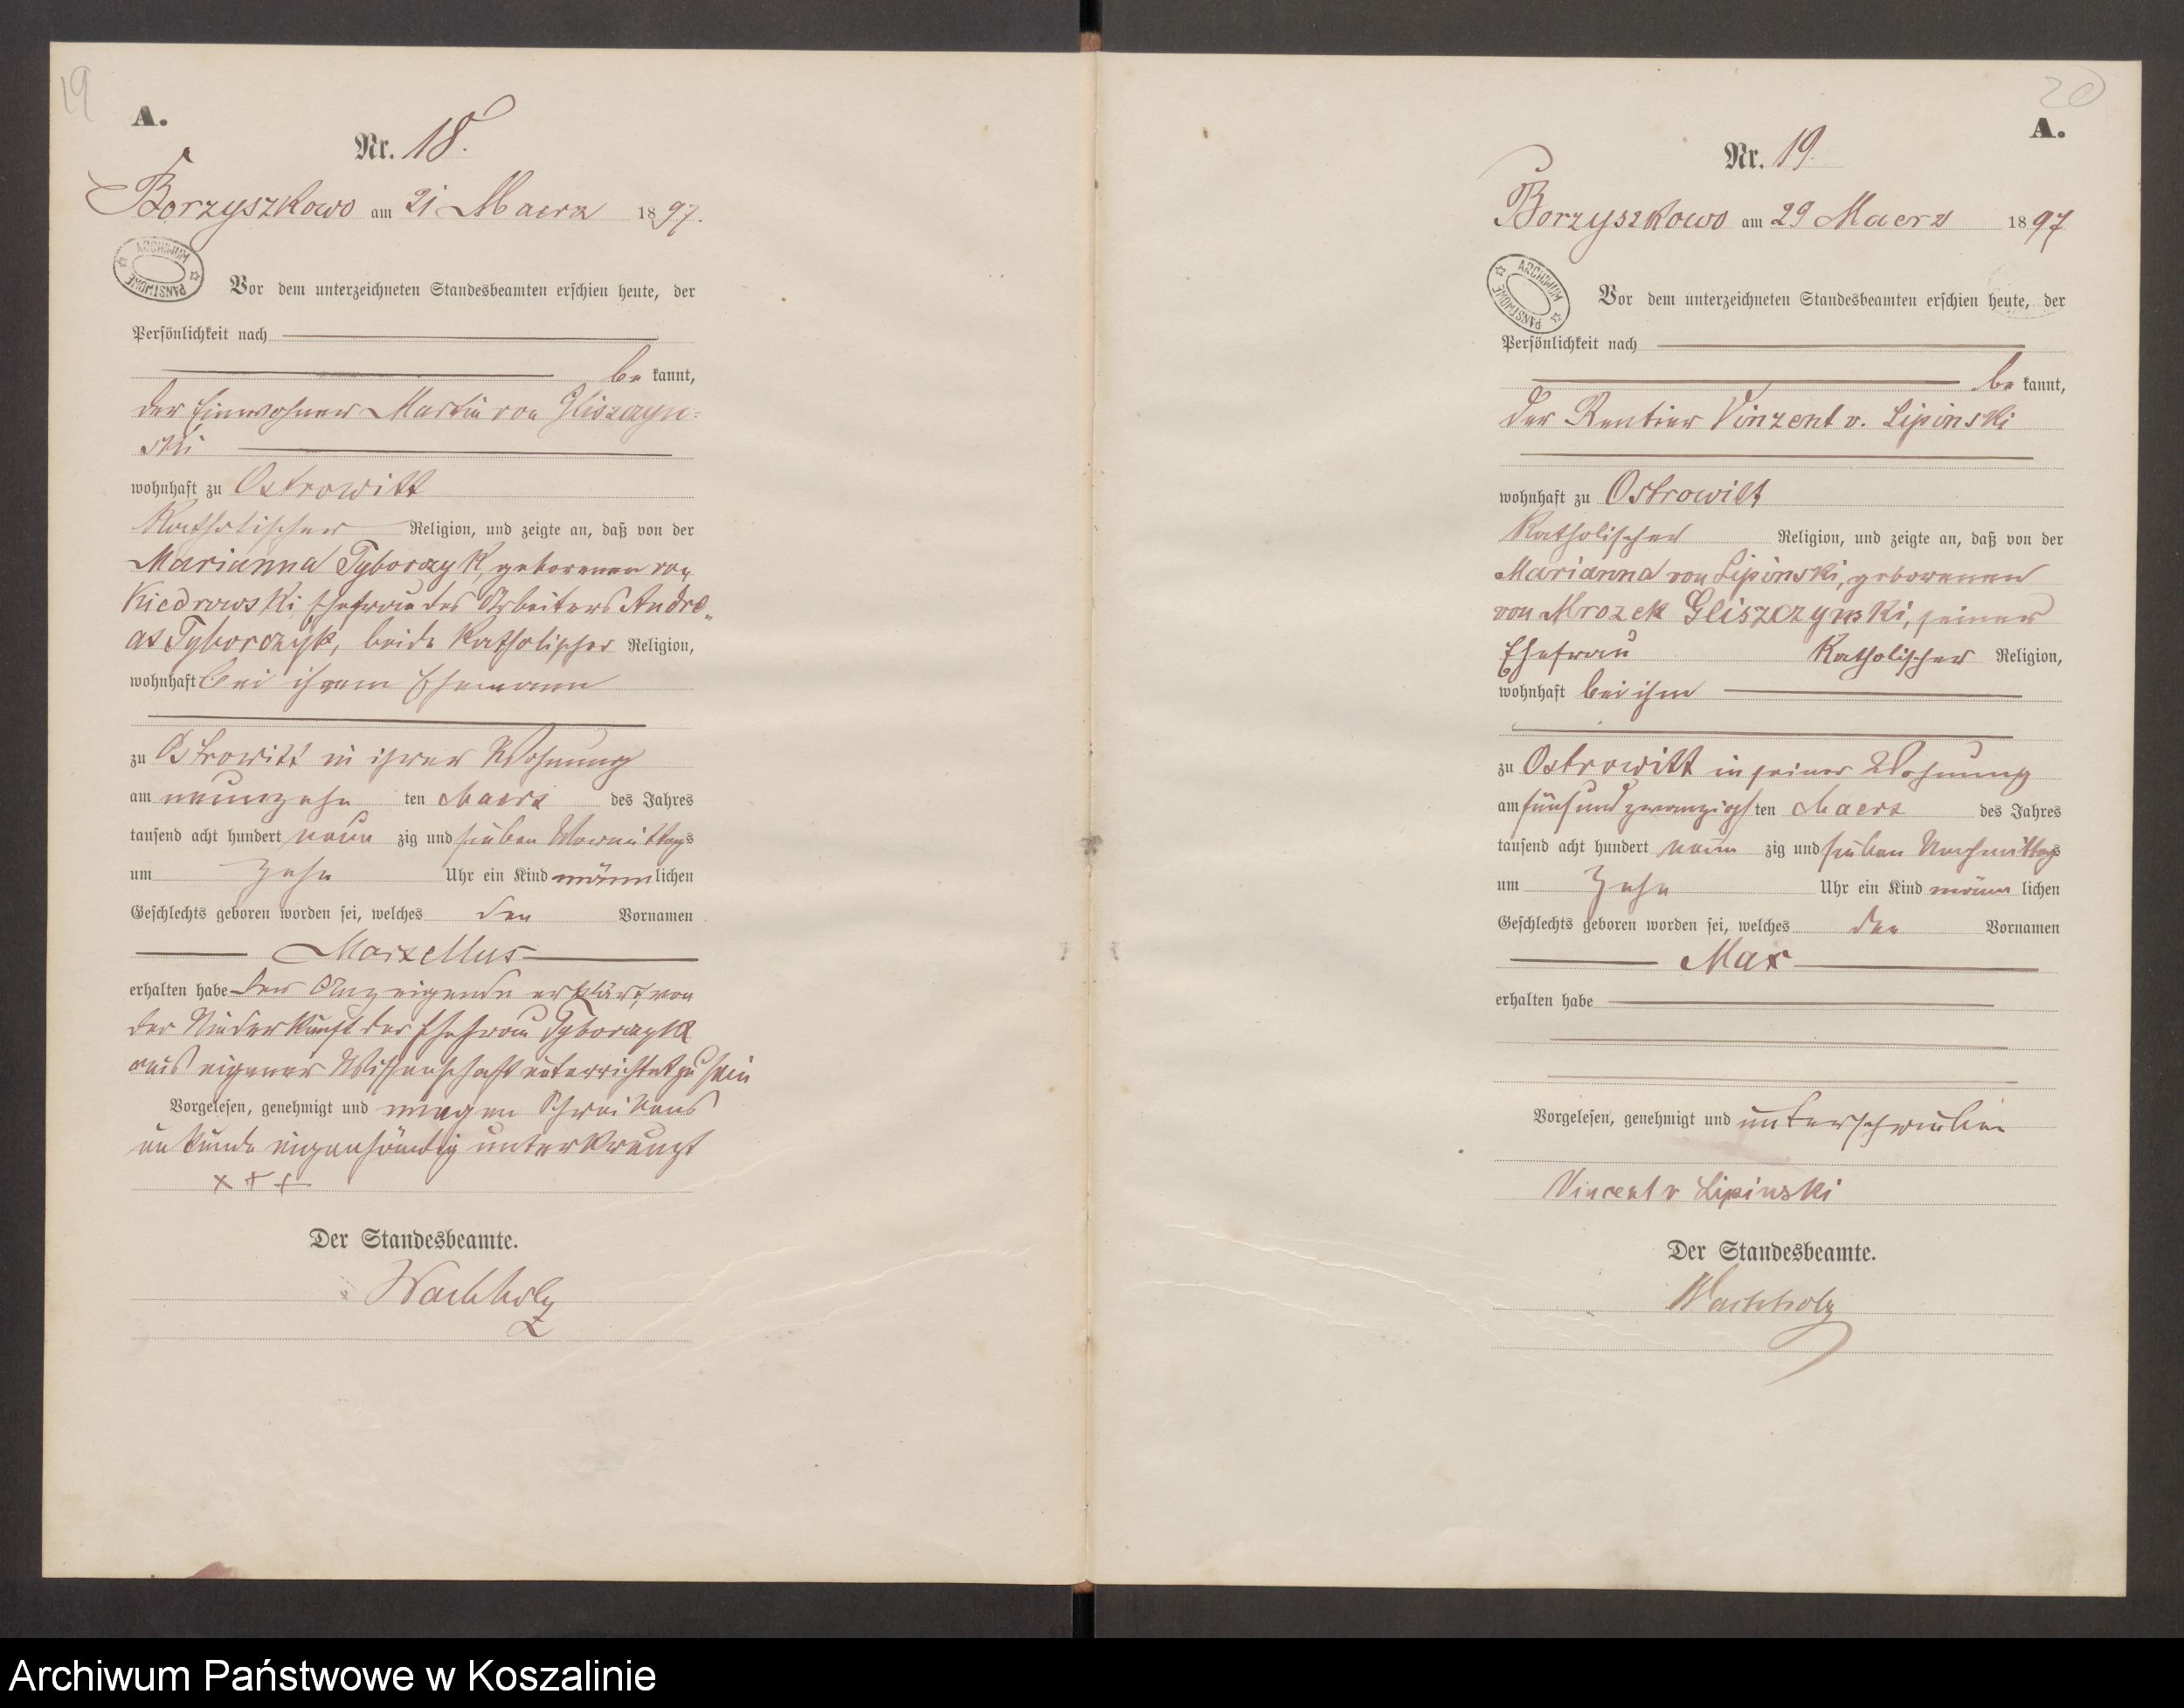 19
A.
Nr. 18.
Borzyszkowo am 21 Maerz 1897.
ARCHIWUM PAŃSTWOWE
Vor dem unterzeichneten Standesbeamten erschien heute, der
Persönlichkeit nach
be kannt,
der Einwohner Martin von Gliszczyn=
ski
wohnhaft zu Ostrowitt
Katholischer Religion, und zeigte an, daß von der
Marianna Tyborczyk, geborenen von
Kiedrowski Ehefrau des Arbeiters Andre„
as Tyborczyk, beide katholischer Religion,
wohnhaft bei ihrem Ehemann
zu Ostrowitt in ihrer Wohnung
am neunzehn ten Maerz des Jahres
tausend acht hundert neun zig und sieben Vormittags
um zehn Uhr ein Kind männlichen
Geschlechts geboren worden sei, welches den Vornamen
Marzellus
erhalten habe Der Anzeigende erklärt, von
der Niederkunft der Ehefrau Tyborczyk
aus eigener Wissenschaft unterrichtet zu sein
Vorgelesen, genehmigt und wegen Schreibens
unkunde eigenhändig unterkreuzt
x + +
Der Standesbeamte.
Wachholz
20
A.
Nr. 19.
Borzyszkowo am 29 Maerz 1897
ARCHIWUM PAŃSTWOWE
Vor dem unterzeichneten Standesbeamten erschien heute, der
Persönlichkeit nach
be kannt,
der Rentier Vinzent v. Lipinski
wohnhaft zu Ostrowitt
Katholischer Religion, und zeigte an, daß von der
Marianna von Lipinski, geborenen
von Mrozek Gliszczynski, seiner
Ehefrau Katholischer Religion,
wohnhaft bei ihm
zu Ostrowitt in seiner Wohnung
am fünf und zwanzigsten Maerz des Jahres
tausend acht hundert neun zig und sieben Nachmittags
um zehn Uhr ein Kind männ lichen
Geschlechts geboren worden sei, welches den Vornamen
Max
erhalten habe
Vorgelesen, genehmigt und unterschrieben
Vincent v Lipinski
Der Standesbeamte.
Wachholz
Archiwum Państwowe w Koszalinie